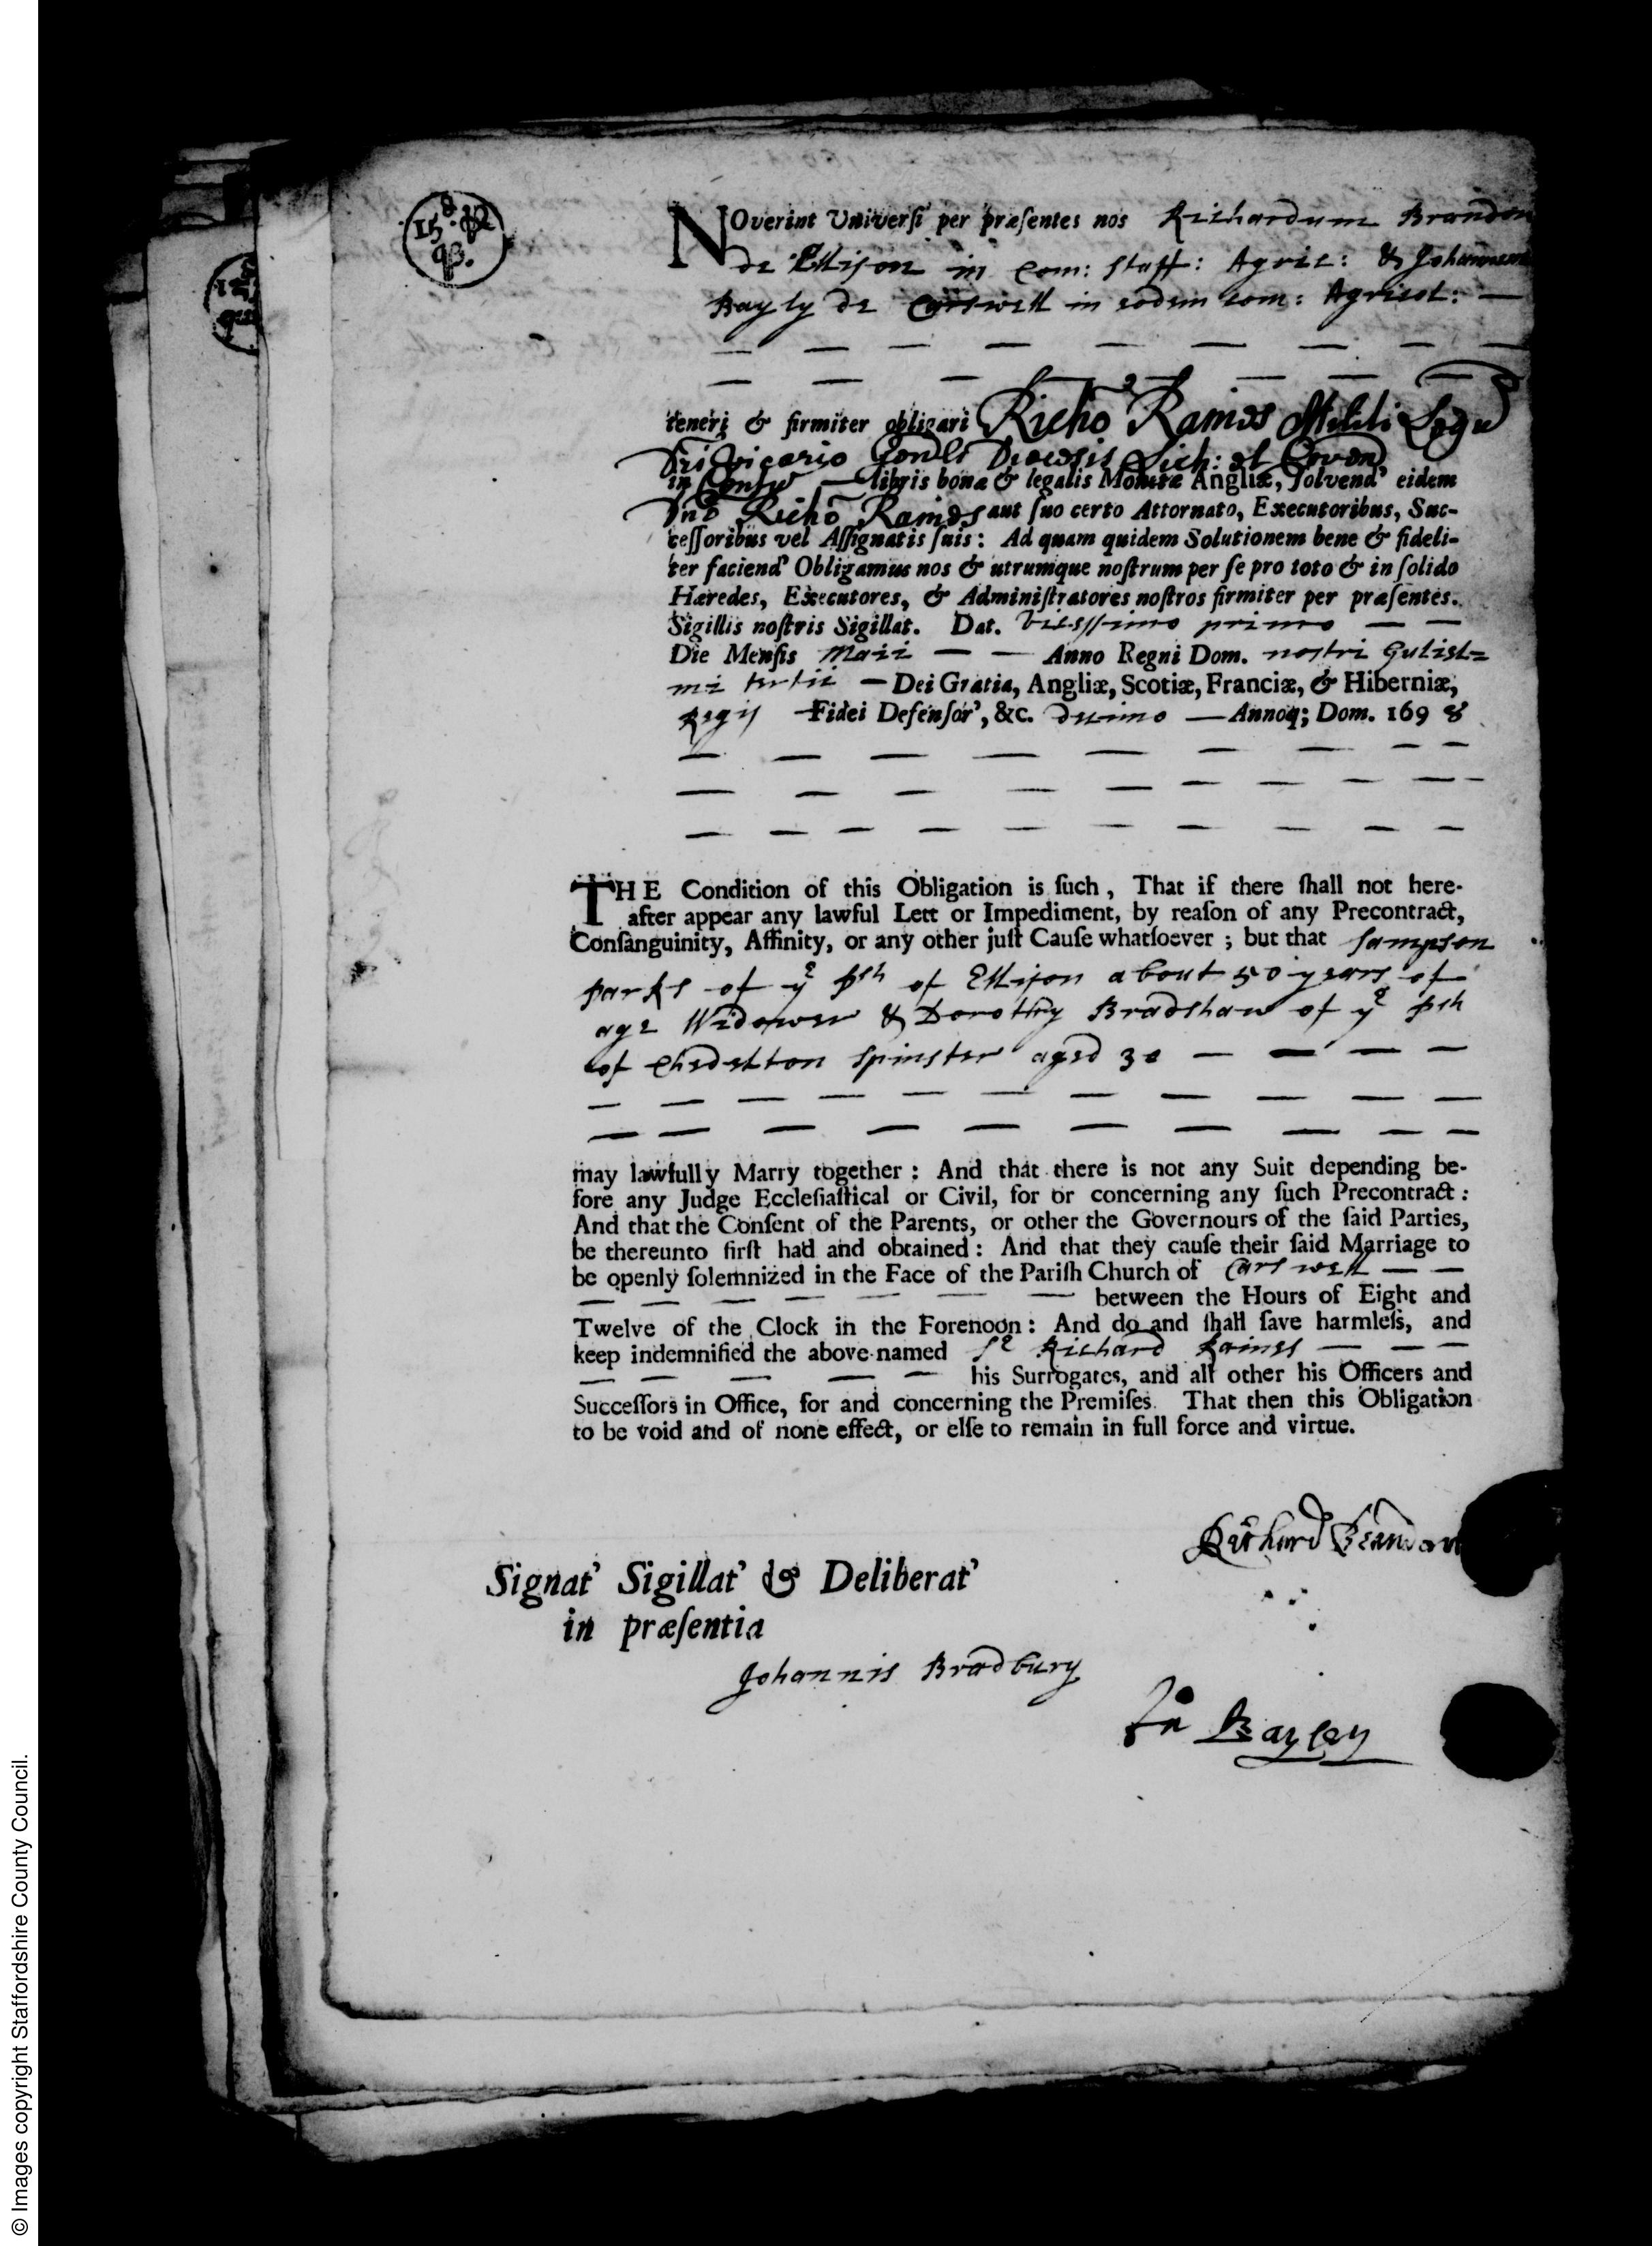 NOverint Universi per præsentes nos Richardum Brandon
de Ellison in Com: Staff: Agric: & Johannem
Bayly de Carswell in eodem com: Agricol: —
teneri & firmiter obligari Richo Raines Militi Legu
Dri Vicario Genli Diocesis Lich: et Coven
in libris bonæ & legalis Monetæ Angliæ, solvend' eidem
Dno Richo Raines aut suo certo Attornato, Executoribus, Suc-
cessoribus vel Assignatis suis: Ad quam quidem Solutionem bene & fideli-
ter faciend' Obligamus nos & utrumque nostrum per se pro toto & in solido
Hæredes, Executores, & Administratores nostros firmiter per præsentes.
Sigillis nostris Sigillat. Dat. vicessimo primo — —
Die Mensis Maii — — Anno Regni Dom. nostri Guliel=
mi tertii — Dei Gratia, Angliæ, Scotiæ, Franciæ, & Hiberniæ,
Regis Fidei Defensor', &c. decimo — Annoq; Dom. 169 8
THE Condition of this Obligation is such, That if there shall not here-
after appear any lawful Lett or Impediment, by reason of any Precontract,
Consanguinity, Affinity, or any other just Cause whatsoever; but that Sampson
Parks of ye psh of Ellison about 50 years of
age Widower & Dorothy Bradshaw of ye psh
of Chedelton Spinster aged 30 — — — —
may lawfully Marry together: And that there is not any Suit depending be-
fore any Judge Ecclesiastical or Civil, for or concerning any such Precontract:
And that the Consent of the Parents, or other the Governours of the said Parties,
be thereunto first had and obtained: And that they cause their said Marriage to
be openly solemnized in the Face of the Parish Church of Carswell — —
between the Hours of Eight and
Twelve of the Clock in the Forenoon: And do and shall save harmless, and
keep indemnified the above-named Sr Richard Raines — — —
his Surrogates, and all other his Officers and
Successors in Office, for and concerning the Premises. That then this Obligation
to be void and of none effect, or else to remain in full force and virtue.
Richard Brandon
Signat' Sigillat' & Deliberat'
in præsentia
Johannis Bradbury
Jn Bayley
© Images copyright Staffordshire County Council.